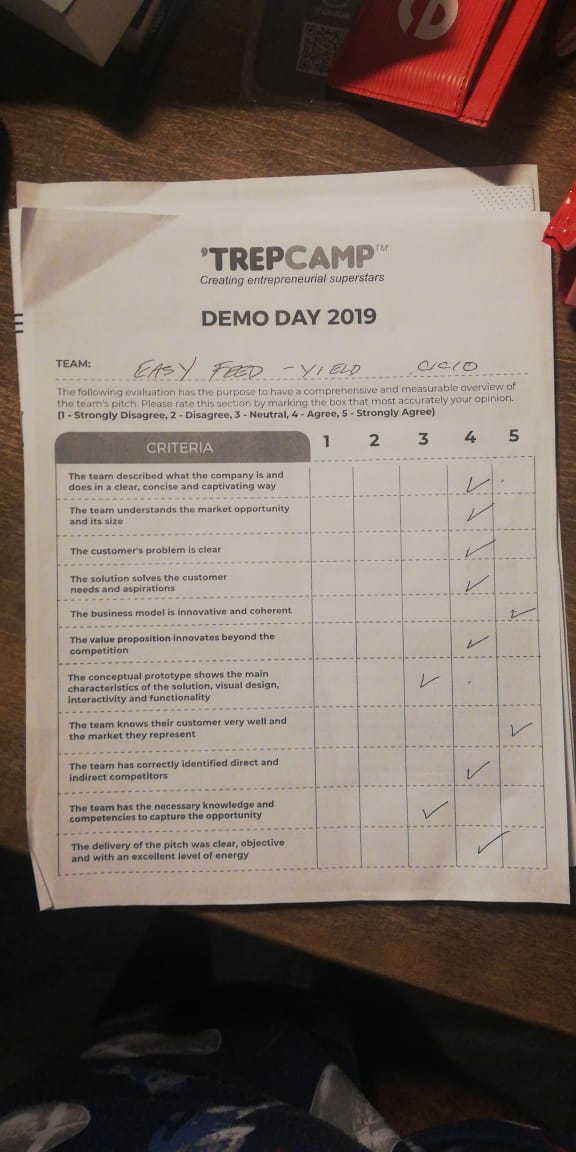 'TREPCAMP™
Creating entrepreneurial superstars
DEMO DAY 2019
TEAM: EASY FEED - YIELD
The following evaluation has the purpose to have a comprehensive and measurable overview of
the team's pitch. Please rate this section by marking the box that most accurately your opinion.
(1 - Strongly Disagree, 2 - Disagree, 3 - Neutral, 4 - Agree, 5 - Strongly Agree)
CRITERIA 1 2 3 4 5
The team described what the company is and
does in a clear, concise and captivating way ✓
The team understands the market opportunity
and its size ✓
The customer's problem is clear ✓
The solution solves the customer
needs and aspirations ✓
The business model is innovative and coherent ✓
The value proposition innovates beyond the
competition ✓
The conceptual prototype shows the main
characteristics of the solution, visual design,
interactivity and functionality ✓
The team knows their customer very well and
the market they represent ✓
The team has correctly identified direct and
indirect competitors ✓
The team has the necessary knowledge and
competencies to capture the opportunity ✓
The delivery of the pitch was clear, objective
and with an excellent level of energy ✓